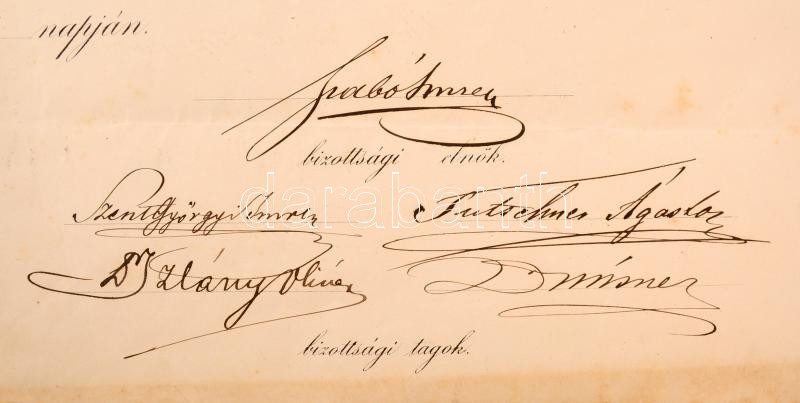 napján.
Szabó Imre
bizottsági elnök.
darabanth
Szentgyörgyi Imre Ágoston
Dr Szlány Olivér
bizottsági tagok.